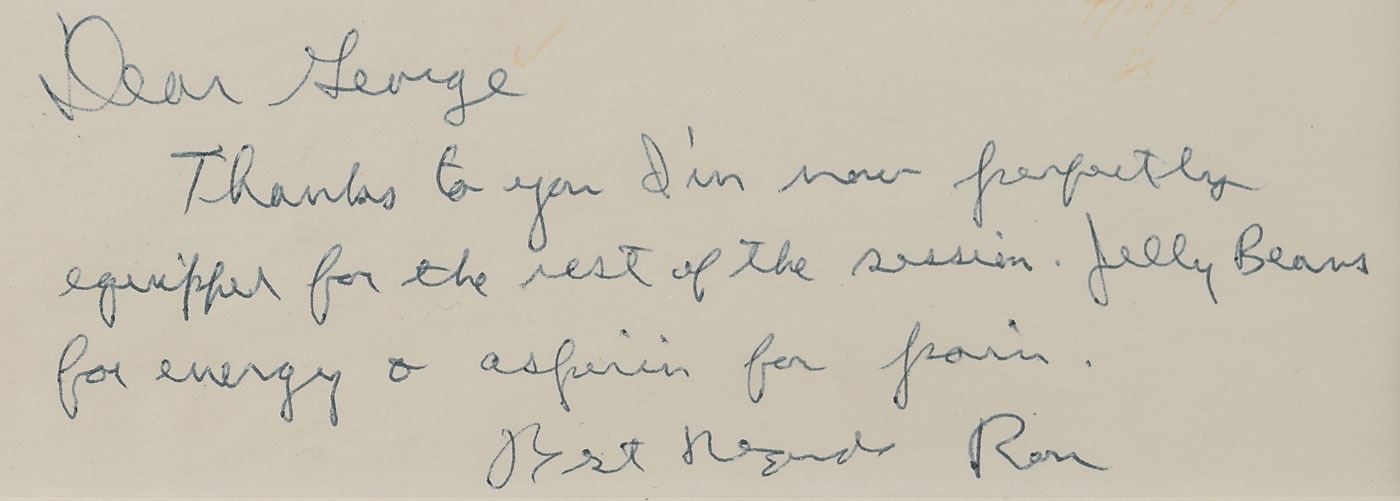 Dear George
Thanks to you I'm now perfectly
equipped for the rest of the session. Jelly Beans
for energy & aspirin for pain.
Best Regards Ron